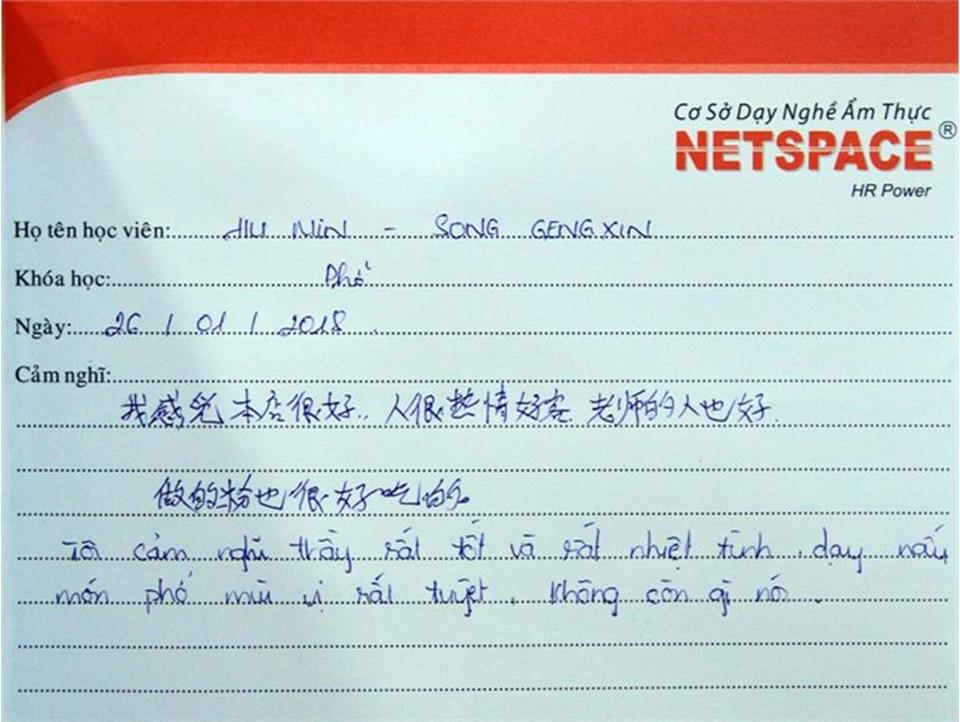 Cơ Sở Dạy Nghề Ẩm Thực
NETSPACE®
HR Power
Họ tên học viên: JIU MIN - SONG GENGXIN
Khóa học: Phở
Ngày: 26 / 01 / 2018.
Cảm nghĩ:
我感觉本店很好.. 人很热情好客. 老师的人也好.
做的粉也很好吃的.
Tôi cảm nghĩ thầy rất tốt và rất nhiệt tình, dạy nấu
món phở mùi vị rất tuyệt, không còn gì nói.